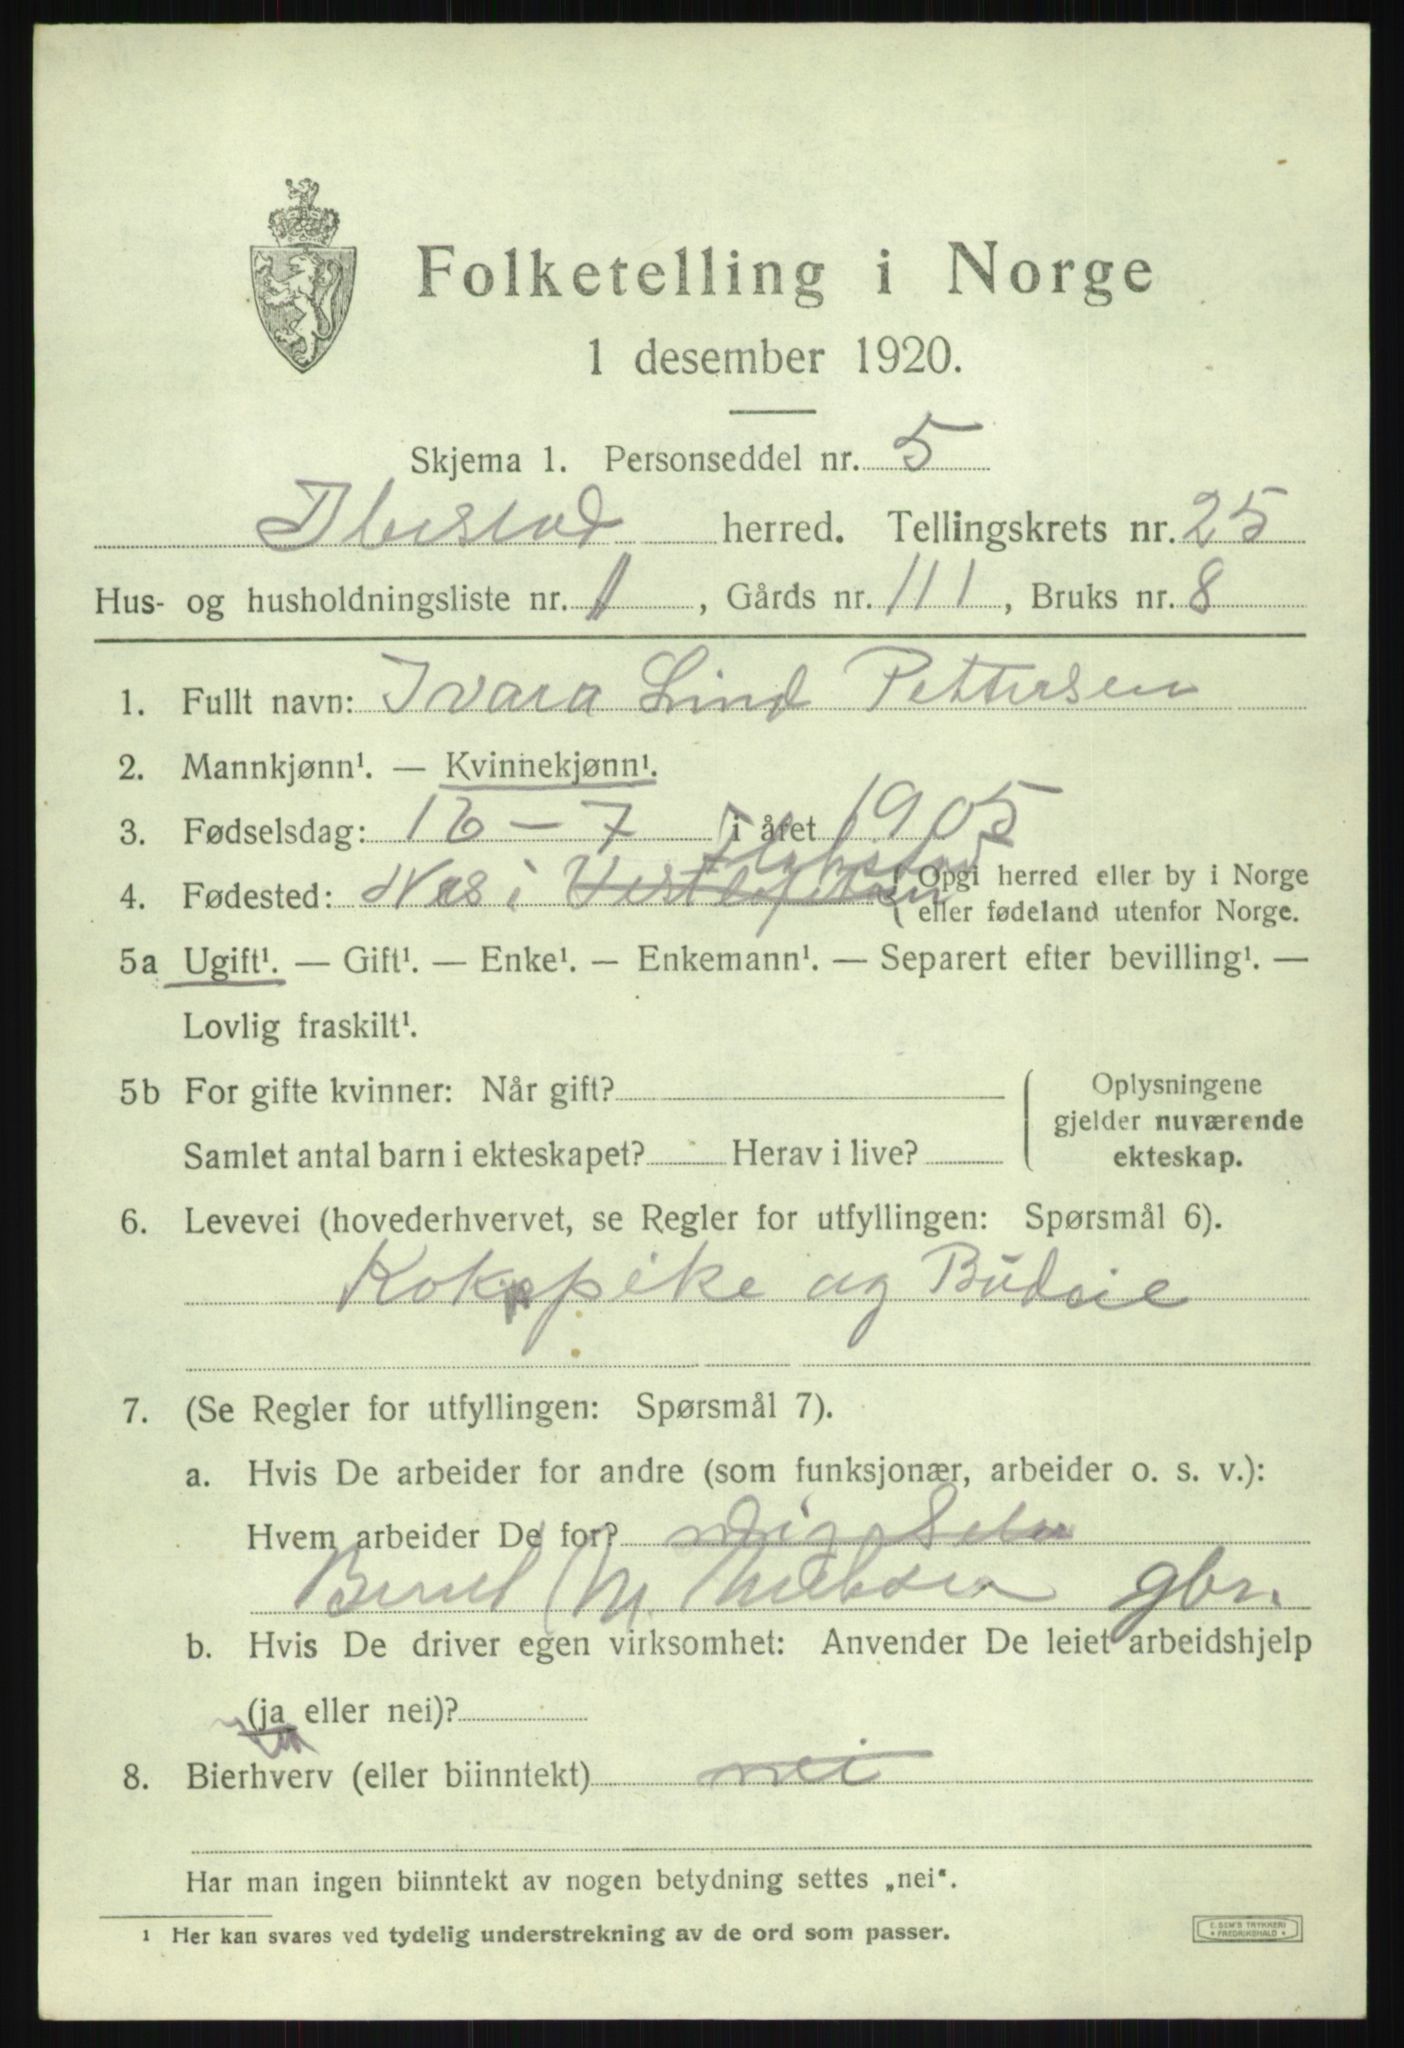 Folketelling i Norge
1 desember 1920.
Skjema 1. Personseddel nr. 5
Ibestad herred. Tellingskrets nr. 25
Hus- og husholdningsliste nr. 1, Gårds nr. 111, Bruks nr. 8
1. Fullt navn: Ivara Lind Pettersen
2. Mannkjønn¹. — Kvinnekjønn¹.
3. Fødselsdag: 16 – 7 i året 1905
4. Fødested: Nes i Flakstad Opgi herred eller by i Norge
eller fødeland utenfor Norge.
5a Ugift¹. — Gift¹. — Enke¹. — Enkemann¹. — Separert efter bevilling¹. —
Lovlig fraskilt¹.
5b For gifte kvinner: Når gift?
Samlet antal barn i ekteskapet? Herav i live?
Oplysningene
gjelder nuværende
ekteskap.
6. Levevei (hovederhvervet, se Regler for utfyllingen: Spørsmål 6).
Kokkepike og Budeie
7. (Se Regler for utfyllingen: Spørsmål 7).
a. Hvis De arbeider for andre (som funksjonær, arbeider o. s. v.):
Hvem arbeider De for? mig Selv
M. gbr.
b. Hvis De driver egen virksomhet: Anvender De leiet arbeidshjelp
(ja eller nei)?
8. Bierhverv (eller biinntekt) nei
Har man ingen biinntekt av nogen betydning settes „nei“.
¹ Her kan svares ved tydelig understrekning av de ord som passer.
E. SEM'S TRYKKERI
FREDRIKSHALD